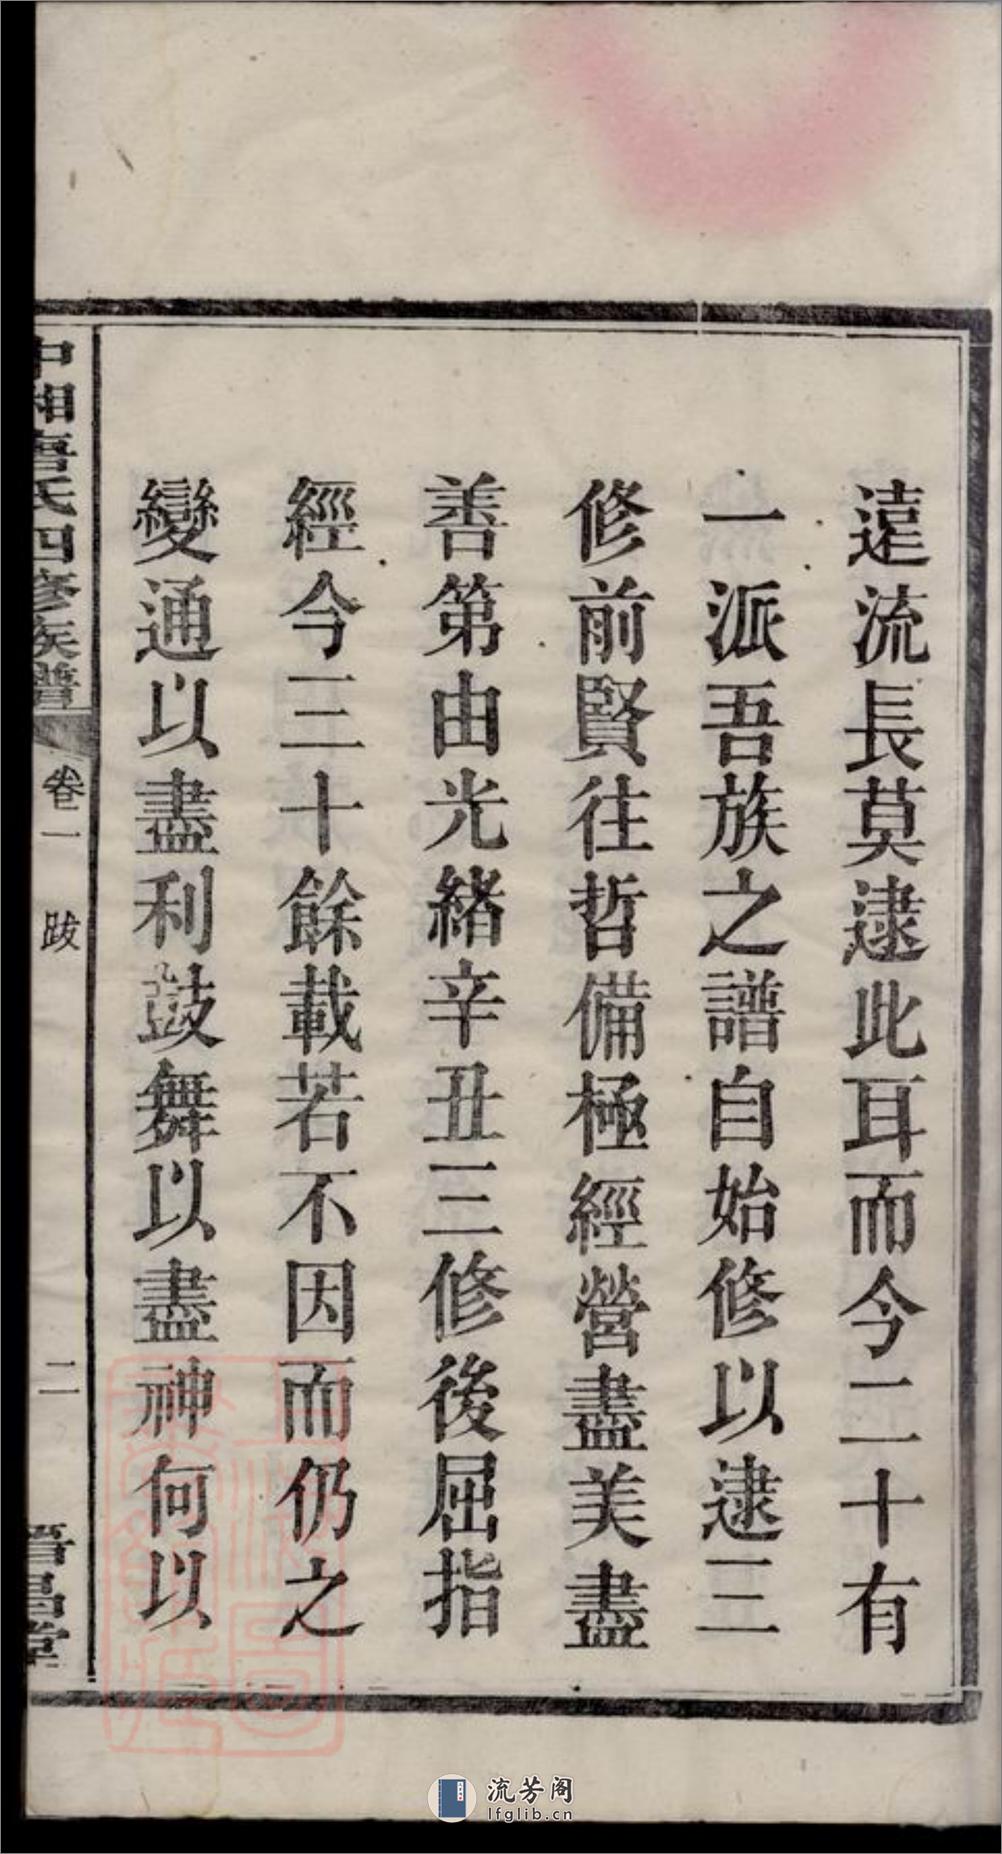 遠流長莫逮此耳而今二十有
一派吾族之譜自始修以逮三
修前賢往哲備極經營盡美盡
善第由光緒辛丑三修後屈指
經今三十餘載若不因而仍之
變通以盡利鼓舞以盡神何以
中湘唐氏四修族譜
卷一 跋
二
晉昌堂
流芳阁
lfglib.cn